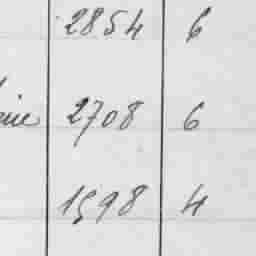 2854 6
2708 6
1598 4